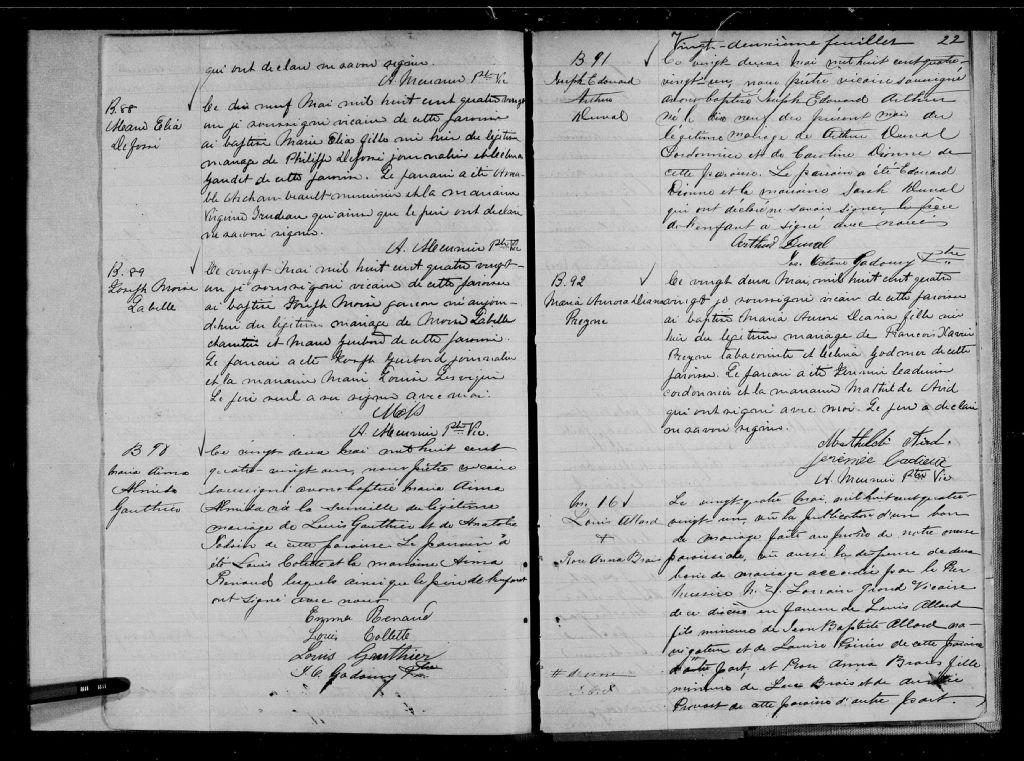 qui ont déclaré ne savoir signer.
A. Meunier Ptre Vic
B. 88
Maria Elia
Defossi
Ce dix neuf Mai mil huit cent quatre vingt
un je soussigné vicaire de cette paroisse
ai baptisé Marie Elia fille née hier du légitime
mariage de Philippe Defossi journalier et
Gaudet de cette paroisse. Le parrain a été
Archambeault menuisier et la marraine
Virginie Trudeau qui ainsi que le père ont déclaré
ne savoir signer.
A. Meunier Ptre Vic
B. 89
Joseph Moise
Labelle
Ce vingt Mai mil huit cent quatre vingt-
un je soussigné vicaire de cette paroisse
ai baptisé Joseph Moise garçon né aujour-
d'hui du légitime mariage de Moise Labelle
charretier et Marie Guibord de cette paroisse.
Le parrain a été Joseph Guibord journalier
et la marraine Marie Louise
Le père seul a su signer avec moi.
A. Meunier Ptre Vic.
B 90
Maria Aima
Almida
Gauthier
Ce vingt deux Mai mil huit cent
quatre-vingt un, nous prêtre vicaire
soussigné avons baptisé Maria Aima
Almida née la surveille du légitime
mariage de Louis Gauthier et de Anatolie
de cette paroisse. Le parrain a
été Louis Colette et la marraine Aima
Renaud lesquels ainsi que le père de l'enfant
ont signé avec nous
Emma Renaud
Louis Collette
Louis Gauthier
J. O. Gadoury Ptre
Vingt-deuxième feuillet 22
B 91
Joseph Edouard
Arthur
Duval
Ce vingt deux Mai mil huit cent quatre-
vingt-un, nous prêtre vicaire soussigné
avons baptisé Joseph Edouard Arthur
né le dix neuf du present mois du
légitime mariage de Arthur Duval
Cordonnier et de Caroline Dionne de
cette paroisse. Le parrain a été Edouard
Dionne et la marraine Sarah Duval
qui ont déclaré ne savoir signer, le père
de l'enfant a signé avec nous
Arthur Duval
Jos. Octave Gadoury Ptre
B. 92
Maria Aurora Diana
Pregone
Ce vingt deux Mai, mil huit cent quatre
vingt un je soussigné vicaire de cette paroisse
ai baptisé Maria Aurore Diana fille née
hier du légitime mariage de Francois Xavier
et de cette
paroisse. Le parrain a été Jeremie
cordonnier et la marraine Mathilde Aird
qui ont signé avec moi. Le père a déclaré
ne savoir signer.
Mathilde Aird.
Jeremie Cadieu
A. Meunier Ptre Vic
M. 16
Louis Allard
+
Rose Anna Brais
Le vingt-quatre Mai, mil huit cent quatre-
vingt-un, vu la publication d'un ban
de mariage faite au prône de notre messe
paroissiale, vu aussi la dispense de deux
bans de mariage accordée par le Rev
Messire N. Z. Lorrain Grand Vicaire
de ce diocèse en faveur de Louis Allard
fils mineur de Jean Baptiste Allard na-
vigateur et de Louise Poirier de cette paroisse
d'autre part, et Rose Anna Brais fille
mineure de Luc Brais et de
Provost de cette paroisse d'autre part.
# d'une
J. O. G